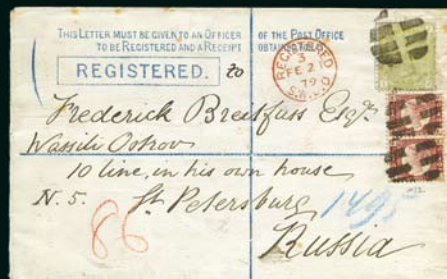 THIS LETTER MUST BE GIVEN TO AN OFFICER OF THE POST OFFICE
TO BE REGISTERED AND A RECEIPT OBTAINED FOR IT
REGISTERED. to
REGISTERED
3
FE 2
79
S.W.D.O
Frederick Breitfuss Esqr.
Wassili Ostrov
10 line, in his own house
N. 5. St. Petersburg 1495
86 Russia